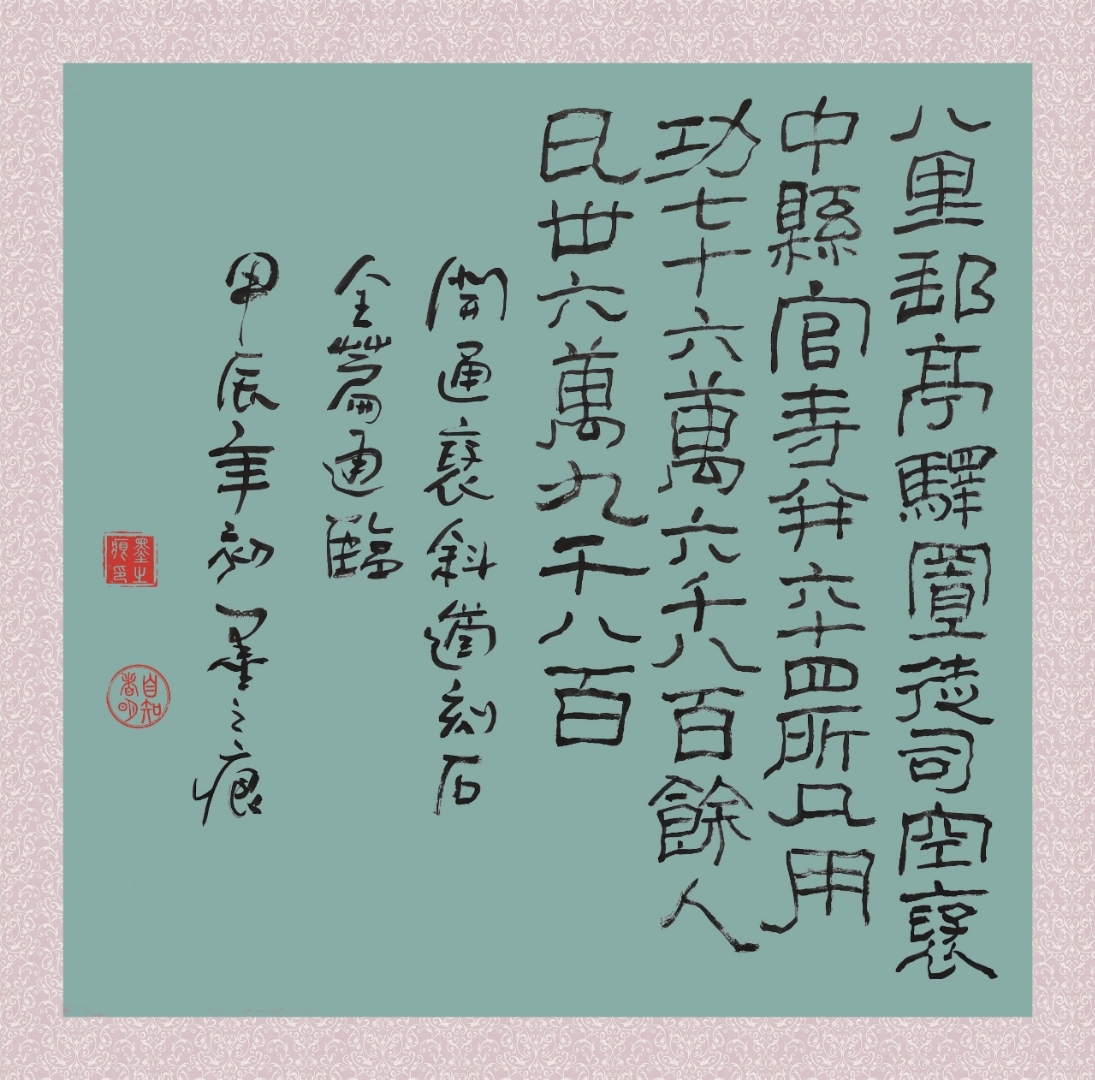 八里郵亭驛置徒司空褒
中縣官寺并六十四所凡用
功七十六萬六千八百餘人
瓦卅六萬九千八百
開通褒斜道刻石
全篇通臨
甲辰年初墨之痕
墨之痕印
自知者明